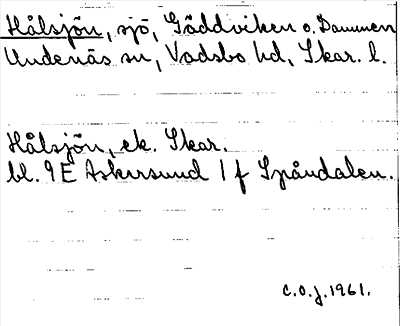 Hålsjön, sjö, Gäddviken o. Dammen
Undenäs sn, Vadsbo hd, Skar. l.
Hålsjön, ek. Skar.
bl. 9E Askersund 1 f Spåndalen.
C.O.J. 1961.